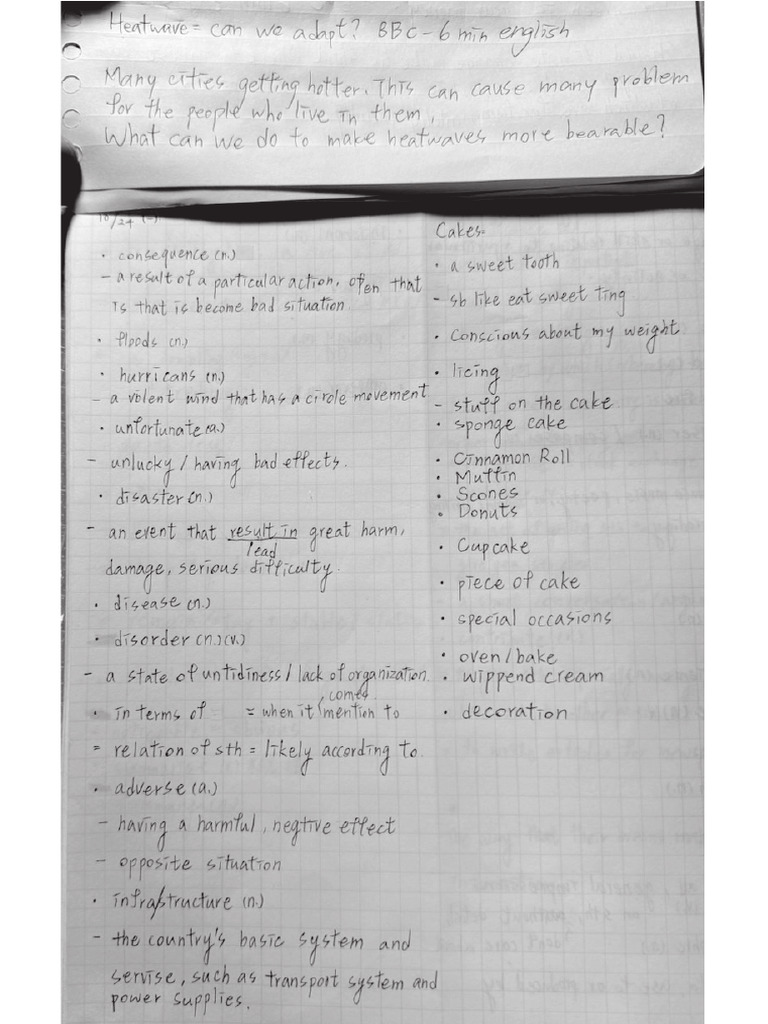 Heatwave = can we adapt? BBC - 6 min english
Many cities getting hotter. This can cause many problem
for the people who live in them,
What can we do to make heatwaves more bearable?
10/24
• consequence (n.)
- a result of a particular action, often that
is that is become bad situation.
• floods (n.)
• hurricans (n.)
- a violent wind that has a circle movement
• unfortunate (a.)
- unlucky / having bad effects.
• disaster (n.)
- an event that result in great harm,
lead
damage, serious difficulty.
• disease (n.)
• disorder (n.) (v.)
- a state of untidiness / lack of organization.
comes
• in terms of = when it mention to
= relation of sth = likely according to.
• adverse (a.)
- having a harmful, negtive effect
- opposite situation
• infrastructure (n.)
- the country's basic system and
servise, such as transport system and
power supplies.
Cakes.
• a sweet tooth
- sb like eat sweet ting
• Conscious about my weight
• licing
- stuff on the cake.
• sponge cake
• Cinnamon Roll
• Muffin
• Scones
• Donuts
• Cupcake
• piece of cake
• special occasions
• oven / bake
• wippend cream
• decoration